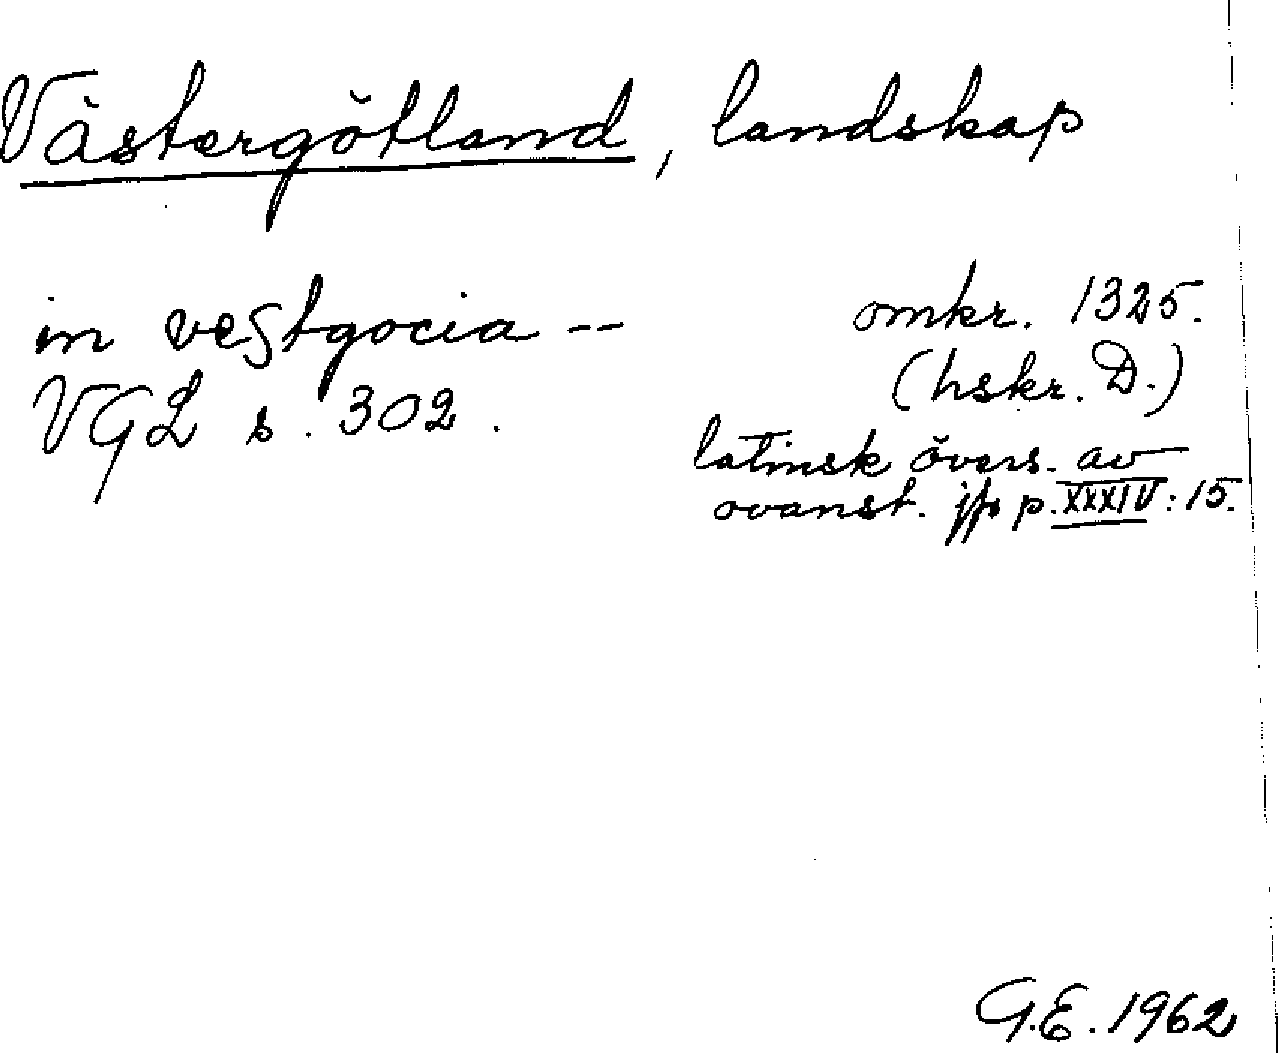 Västergötland, landskap
in vestgocia -- omkr. 1325.
VGL s. 302. (hskr. D.)
latinsk övers. av
ovanst. jfr p. XXXIV: 15.
G.E. 1962